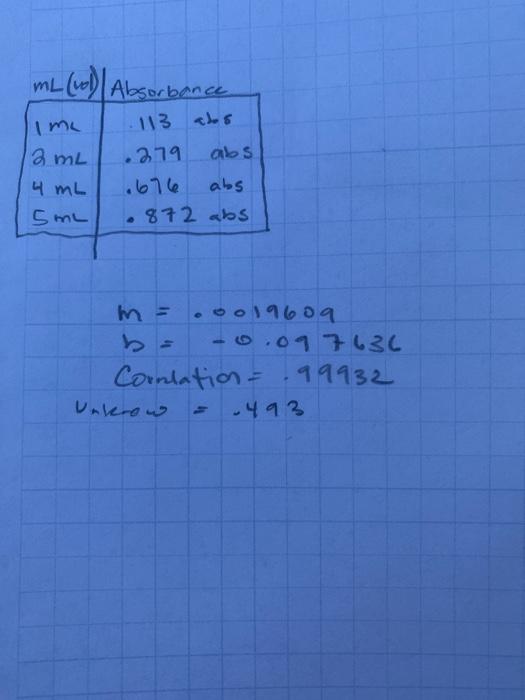 mL (vol) Absorbance
1 mL .113 abs
2 mL .279 abs
4 mL .676 abs
5 mL .872 abs
m = .0019609
b = -0.097636
Cornlation = .99932
Unknow = .493